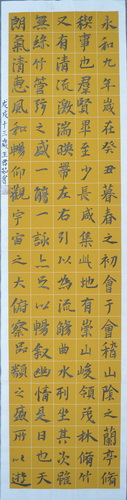 永和九年歲在癸丑暮春之初會于會稽山陰之蘭亭脩
禊事也羣賢畢至少長咸集此地有崇山峻領茂林脩竹
又有清流激湍映帶左右引以為流觴曲水列坐其次雖
無絲竹管弦之盛一觴一詠亦足以暢敘幽情是日也天
朗氣清惠風和暢仰觀宇宙之大俯察品類之盛所以遊